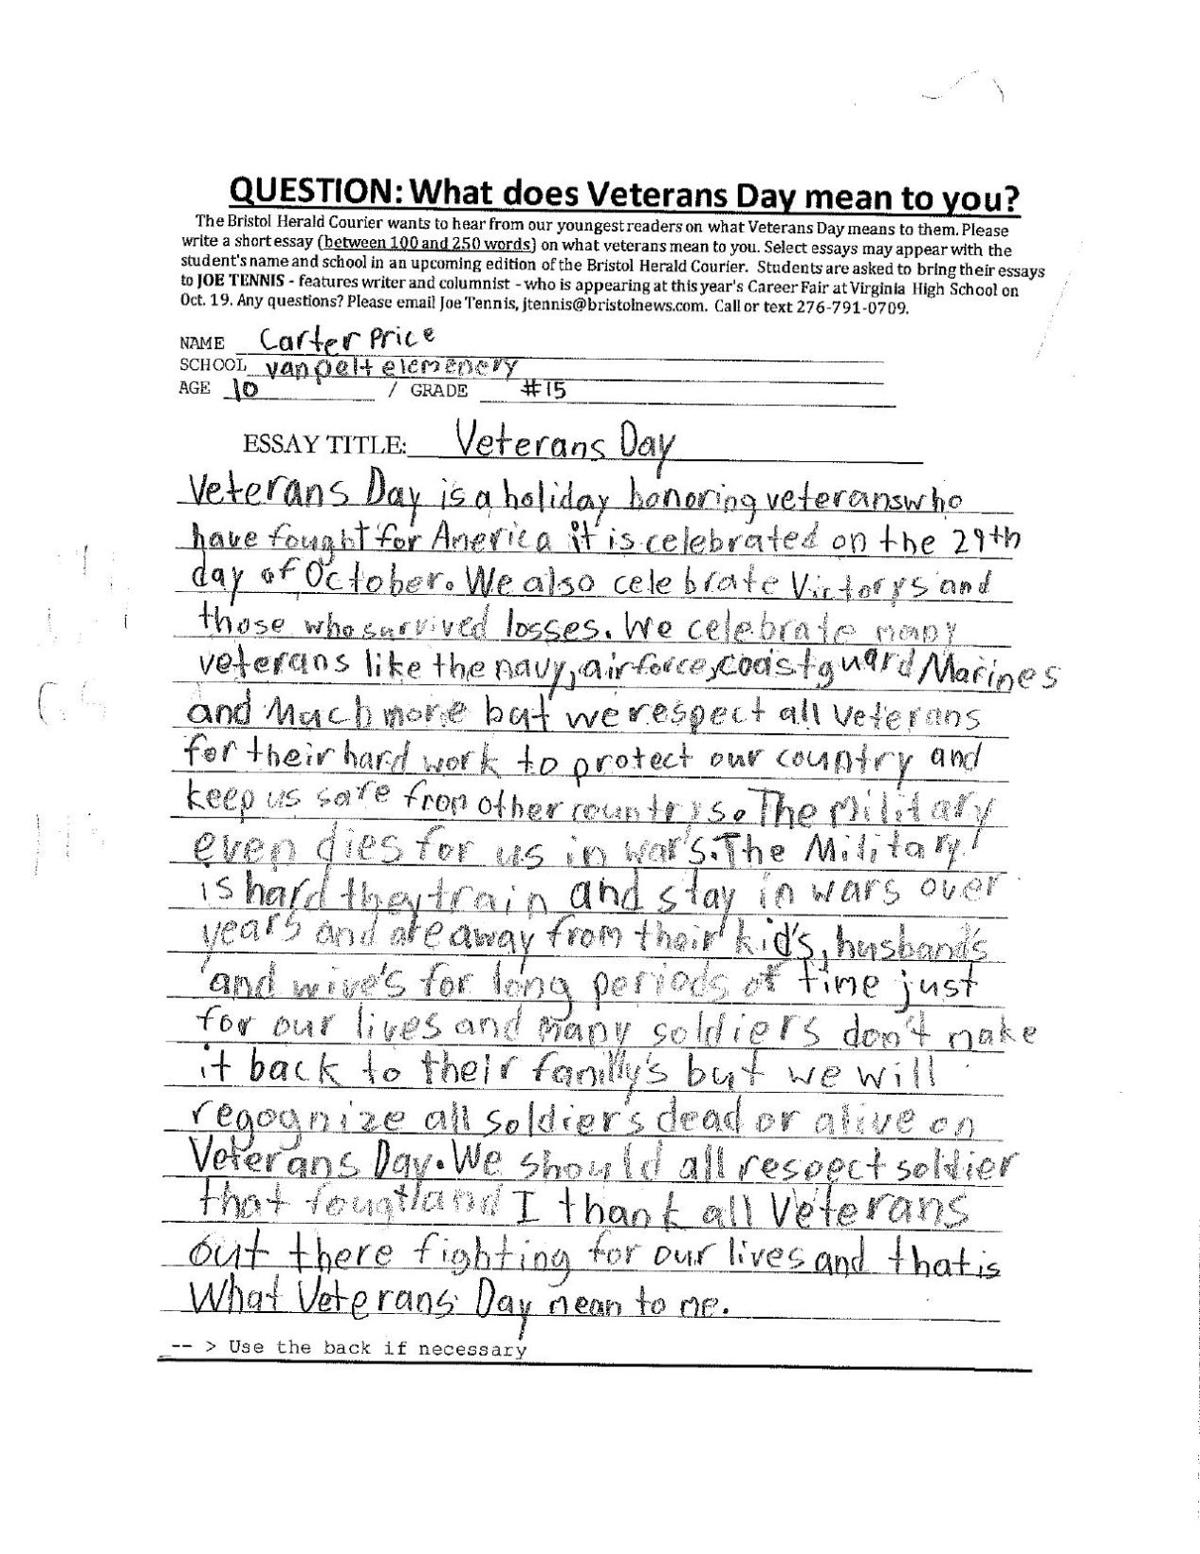 QUESTION: What does Veterans Day mean to you?
The Bristol Herald Courier wants to hear from our youngest readers on what Veterans Day means to them. Please
write a short essay (between 100 and 250 words) on what veterans mean to you. Select essays may appear with the
student's name and school in an upcoming edition of the Bristol Herald Courier. Students are asked to bring their essays
to JOE TENNIS - features writer and columnist - who is appearing at this year's Career Fair at Virginia High School on
Oct. 19. Any questions? Please email Joe Tennis, jtennis@bristolnews.com. Call or text 276-791-0709.
NAME Carter Price
SCHOOL van pelt elemenery
AGE 10 / GRADE #15
ESSAY TITLE: Veterans Day
Veterans Day is a holiday honoring veterans who
have fought for America it is celebrated on the 29th
day of October. We also celebrate Victorys and
those who survived losses. We celebrate many
veterans like the navy, airforce, coastguard Marines
and Mach more but we respect all veterans
for their hard work to protect our country and
keep us safe from other countrys. The Military
even dies for us in war's. The Military
is hard they train and stay in wars over
years and are away from their kid's, husband's
and wive's for long periods of time just
for our lives and many soldiers don't make
it back to their familly's but we will
regognize all soldier's dead or alive on
Veterans Day. We should all respect soldier
that fought and I thank all Veterans
out there fighting for our lives and that is
What Veterans Day mean to me.
-- > Use the back if necessary